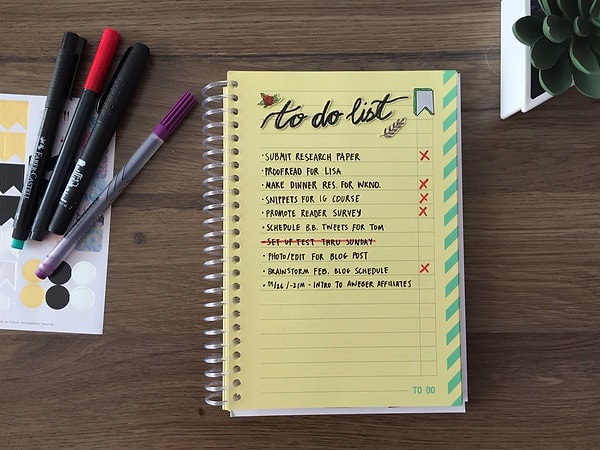 to do list
· SUBMIT RESEARCH PAPER X
· PROOFREAD FOR LISA
· MAKE DINNER RES. FOR WKND. X
· SNIPPETS FOR IG COURSE X
· PROMOTE READER SURVEY X
· SCHEDULE B.B. TWEETS FOR TOM
· SET UP TEST THRU SUNDAY
· PHOTO/EDIT FOR BLOG POST
· BRAINSTORM FEB. BLOG SCHEDULE X
· 01/26 1-2PM - INTRO TO AWEBER AFFILIATES
TO DO